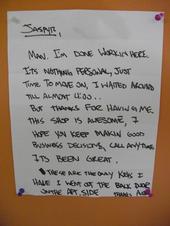 JASPYR,
MAN. I'M DONE WORKIN HERE.
ITS NOTHING PERSONAL, JUST
TIME TO MOVE ON, I WAITED AROUND
TILL ALMOST 4:00..
BUT THANKS FOR HAVIN ME.
THIS SHOP IS AWESOME, I
HOPE YOU KEEP MAKIN GOOD
BUSINESS DECISIONS, CALL ANYTIME
ITS BEEN GREAT.
THESE ARE THE ONLY KEYS I
HAVE I WENT OUT THE BACK DOOR
ON THE APT. SIDE